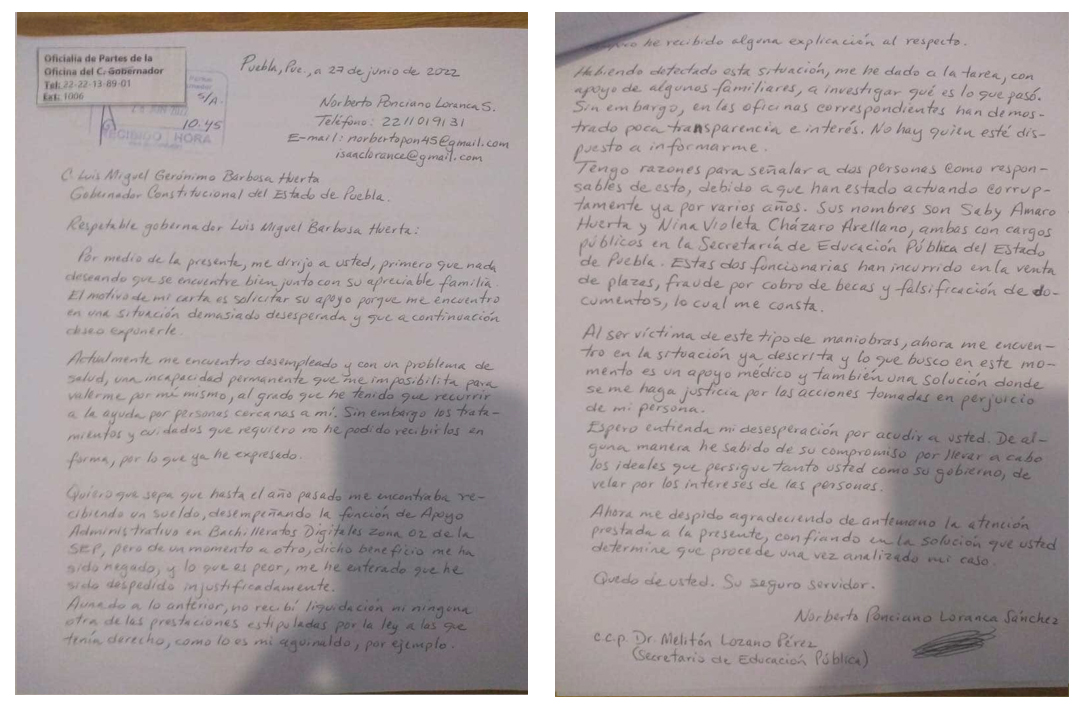 Oficialia de Partes de la
Oficina del C. Gobernador
Tel: 22-22-13-89-01
Ext: 1006
S/A.
10:45
RECIBIDO HORA
Puebla, Pue., a 27 de junio de 2022
Norberto Ponciano Loranca S.
Teléfono: 2211019131
E-mail: norbertopon45@gmail.com
isaaclorance@gmail.com
C. Luis Miguel Gerónimo Barbosa Huerta
Gobernador Constitucional del Estado de Puebla.
Respetable gobernador Luis Miguel Barbosa Huerta:
Por medio de la presente, me dirijo a usted, primero que nada
deseando que se encuentre bien junto con su apreciable familia.
El motivo de mi carta es solicitar su apoyo porque me encuentro
en una situación demasiado desesperada y que a continuación
deseo exponerle.
Actualmente me encuentro desempleado y con un problema de
salud, una incapacidad permanente que me imposibilita para
valerme por mi mismo, al grado que he tenido que recurrir
a la ayuda por personas cercanas a mí. Sin embargo los trata-
mientos y cuidados que requiero no he podido recibirlos en
forma, por lo que ya he expresado.
Quiero que sepa que hasta el año pasado me encontraba re-
cibiendo un sueldo, desempeñando la función de Apoyo
Administrativo en Bachilleratos Digitales zona 02 de la
SEP, pero de un momento a otro, dicho beneficio me ha
sido negado, y lo que es peor, me he enterado que he
sido despedido injustificadamente.
Aunado a lo anterior, no recibí liquidación ni ninguna
otra de las prestaciones estipuladas por la ley a las que
tenía derecho, como lo es mi aguinaldo, por ejemplo.
he recibido alguna explicación al respecto.
Habiendo detectado esta situación, me he dado a la tarea, con
apoyo de algunos familiares, a investigar qué es lo que pasó.
Sin embargo, en las oficinas correspondientes han demos-
trado poca transparencia e interés. No hay quien esté dis-
puesto a informarme.
Tengo razones para señalar a dos personas como respon-
sables de esto, debido a que han estado actuando corrup-
tamente ya por varios años. Sus nombres son Saby Amaro
Huerta y Nina Violeta Cházaro Arellano, ambas con cargos
públicos en la Secretaría de Educación Pública del Estado
de Puebla. Estas dos funcionarias han incurrido en la venta
de plazas, fraude por cobro de becas y falsificación de do-
cumentos, lo cual me consta.
Al ser víctima de este tipo de maniobras, ahora me encuen-
tro en la situación ya descrita y lo que busco en este mo-
mento es un apoyo médico y también una solución donde
se me haga justicia por las acciones tomadas en perjuicio
de mi persona.
Espero entienda mi desesperación por acudir a usted. De al-
guna manera he sabido de su compromiso por llevar a cabo
los ideales que persigue tanto usted como su gobierno, de
velar por los intereses de las personas.
Ahora me despido agradeciendo de antemano la atención
prestada a la presente, confiando en la solución que usted
determine que procede una vez analizado mi caso.
Quedo de usted. Su seguro servidor.
Norberto Ponciano Loranca Sánchez
c.c.p. Dr. Melitón Lozano Pérez
(Secretario de Educación Pública)